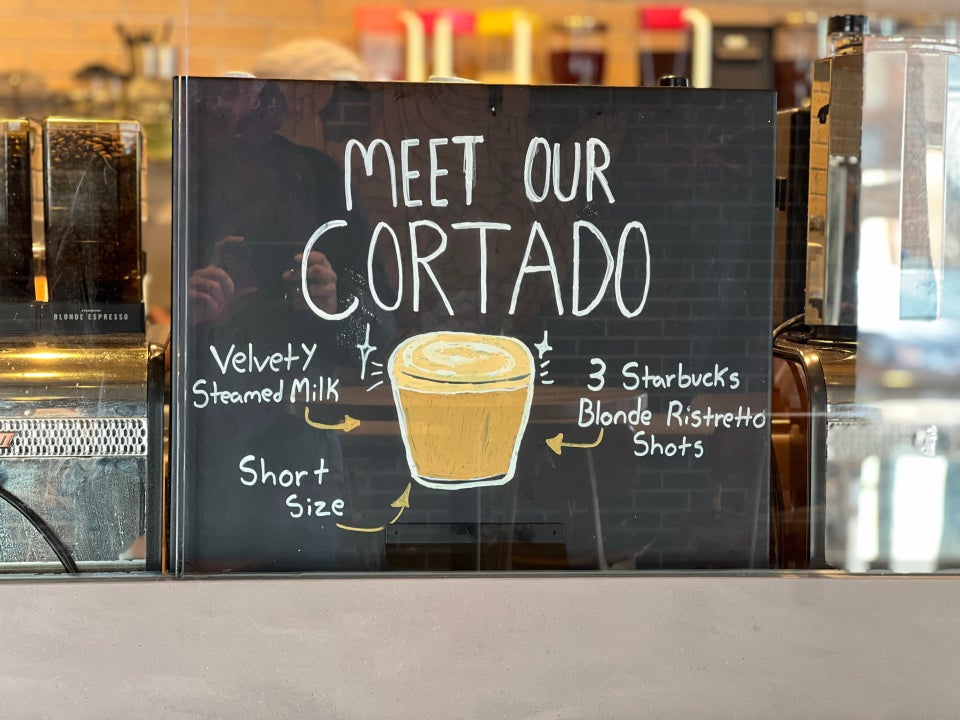 MEET OUR
CORTADO
Velvety
Steamed Milk
3 Starbucks
Blonde Ristretto
Shots
Short
Size
BLONDE ESPRESSO